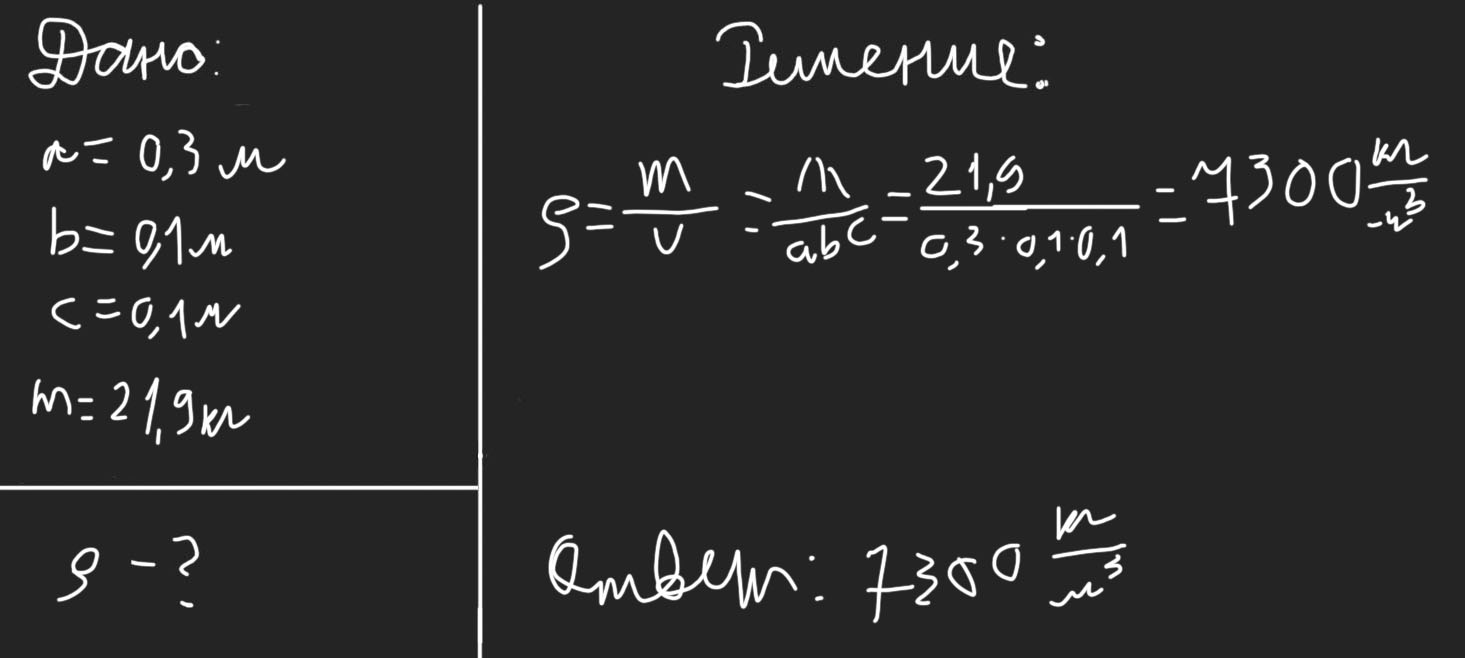 Дано:
a = 0,3 м
b = 0,1 м
c = 0,1 м
m = 21,9 кг
ρ - ?
Решение:
ρ = m/v = m/abc = 21,9/0,3·0,1·0,1 = 7300 кг/м³
Ответ: 7300 кг/м³